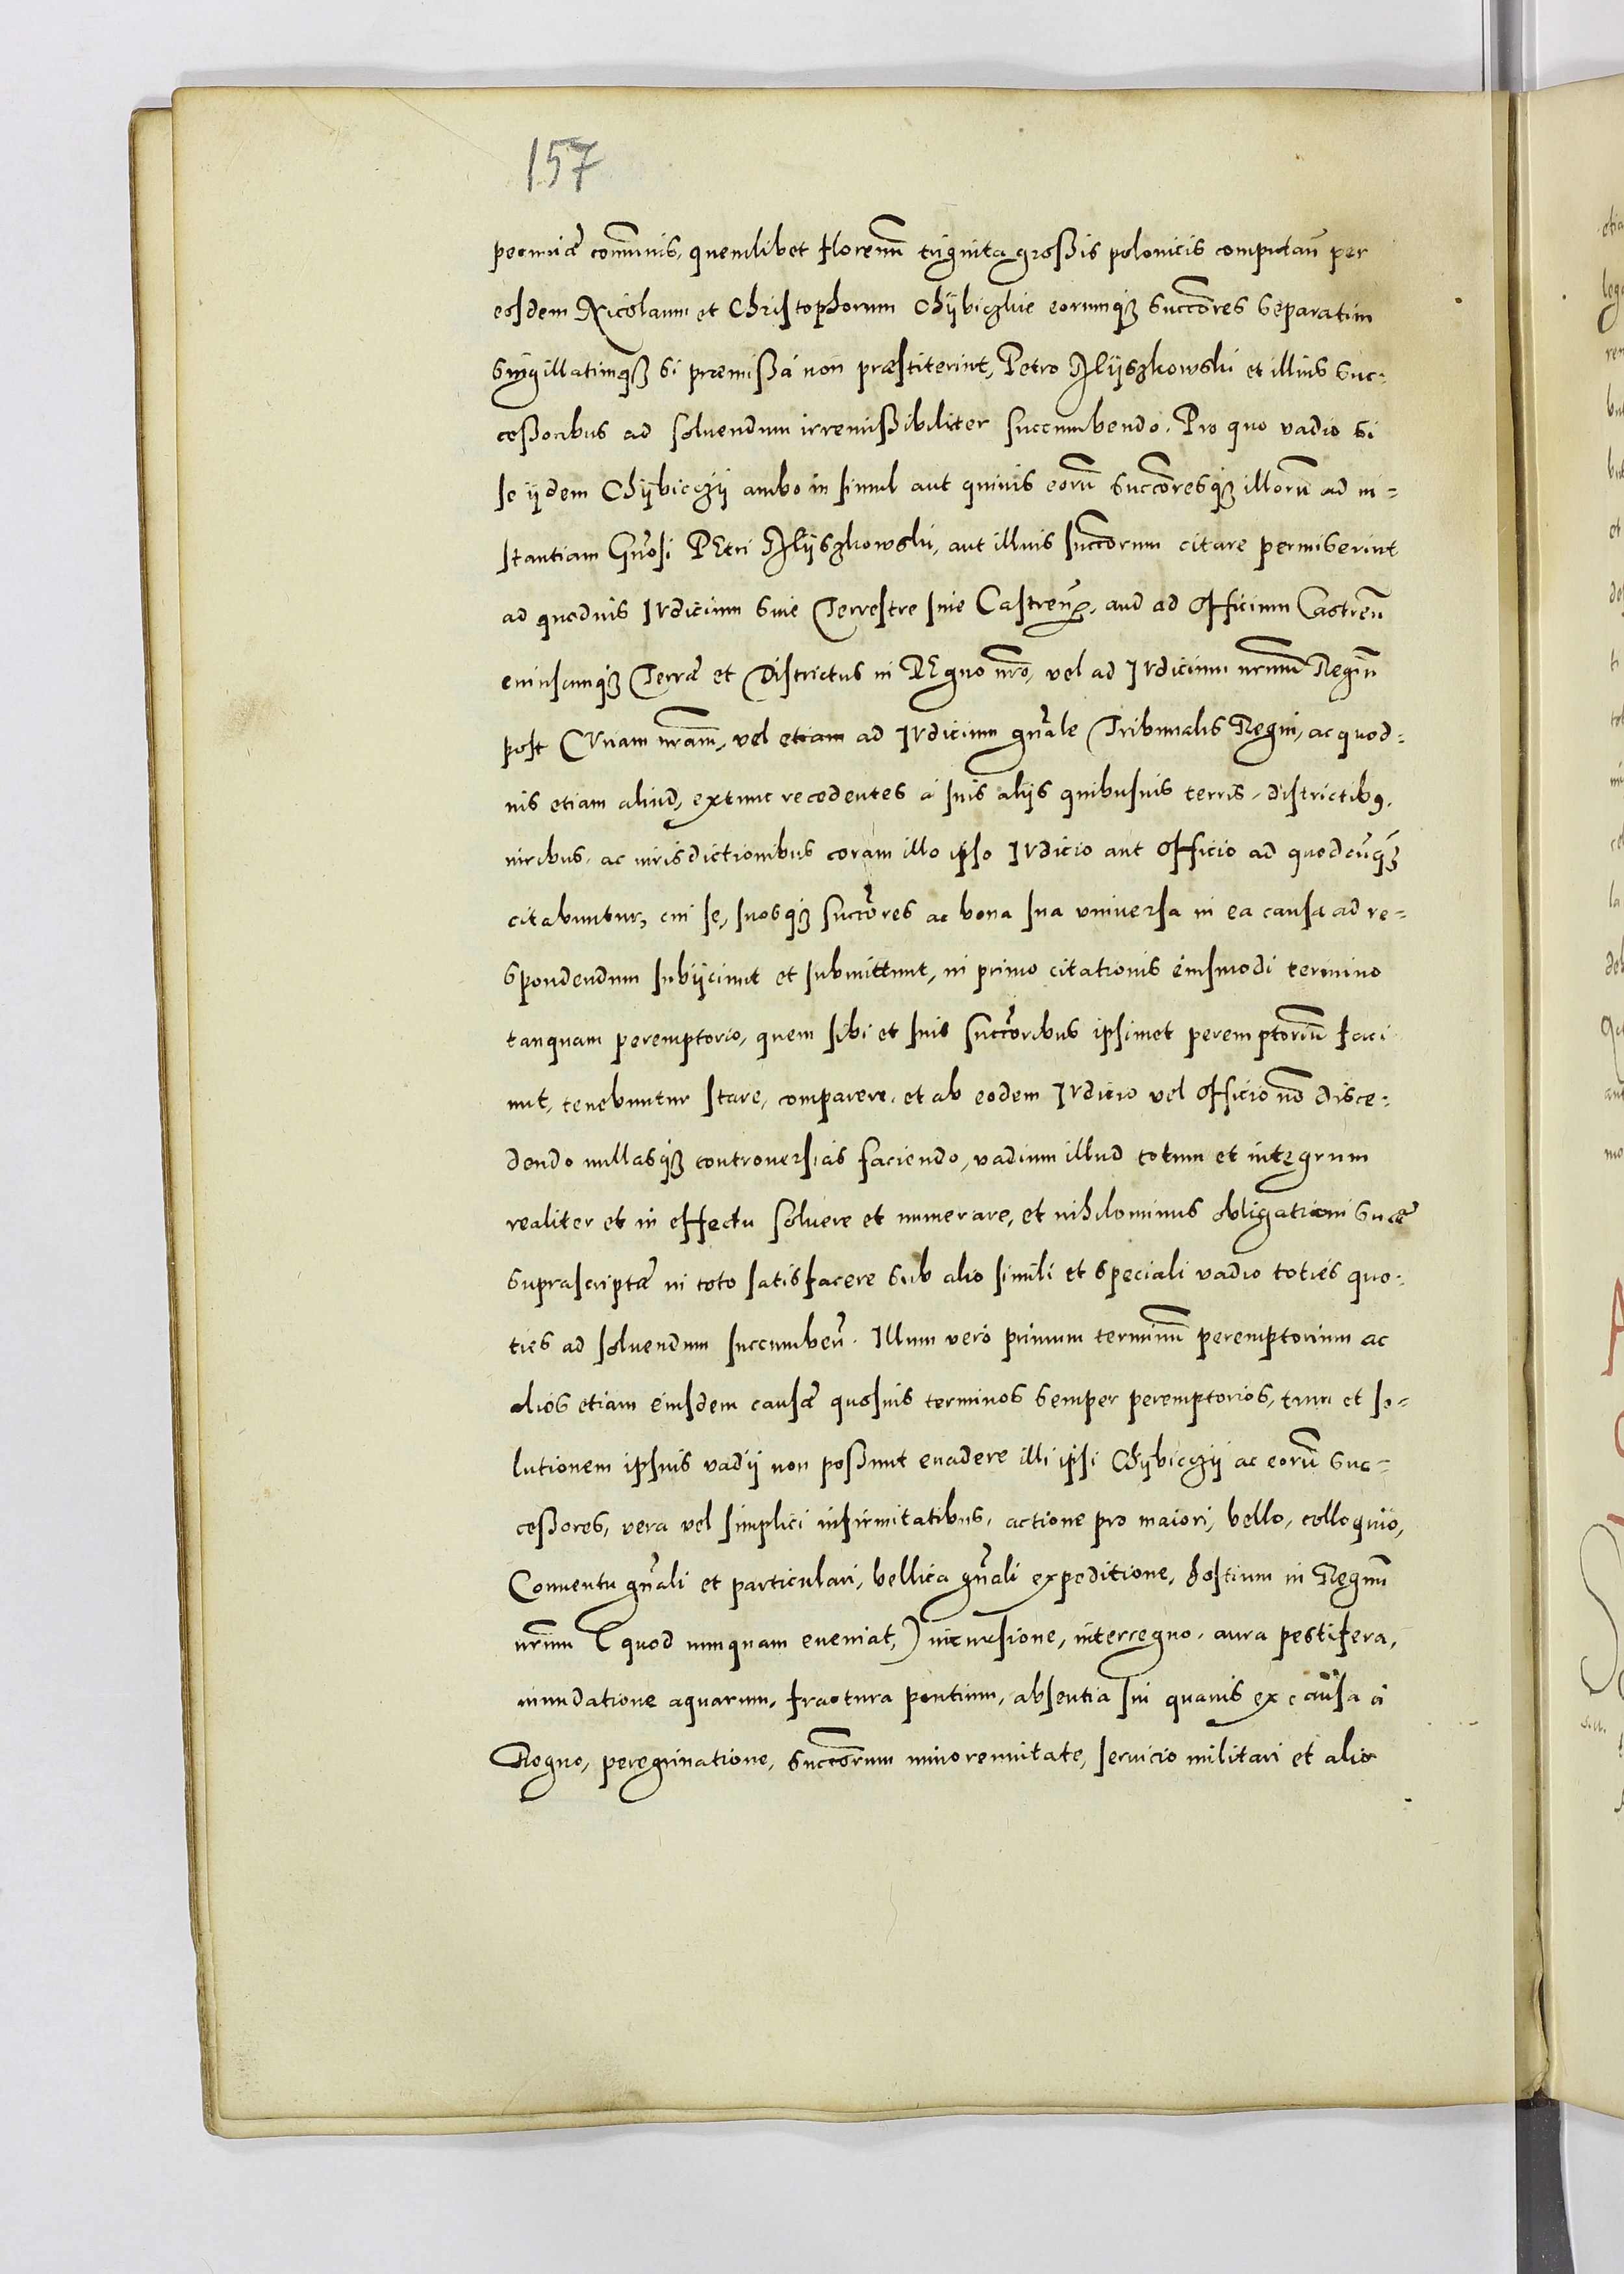 157
pecuniæ comunis, quemlibet florenũ triginta großis polonicis computañ per
eosdem Nicolaum et Christophorum Chÿbiczkie eorumqꝫ succõres separatim
singillatimqꝫ si præmißa non præstiterint, Petro Mÿszkowski et illius suc-
ceßoribus ad soluendum irremißibiliter succumbendo. Pro quo vadio si
se ijdem Chÿbicczÿ ambo in simul aut quiuis eorũ succõresqꝫ illorũ ad in-
stantiam Gñosi PEtri Mÿszkowski, aut illius succõrum citare permiserint
ad quoduis IVdicium siue Terrestre siue Castreñ, aud ad officium Castreñ
cuiuscunqꝫ Terræ et Districtus in REgno nrõ, vel ad IVdicium nrũm Regiũ
post CVriam nrãm, vel etiam ad IVdicium gñale Tribunalis Regni, ac quod-
uis etiam aliud, extunc recedentes a suis alijs quibusuis terris, districtibꝯ,
iuribus, ac iurisdictionibus coram illo ipso IVdicio aut officio ad quodcũqꝫ
citabuntur, cui se, suosqꝫ succõres ac bona sua vniuersa in ea causa ad re-
spondendum subijciunt et submittunt, in primo citationis eiusmodi termino
tanquam peremptorio, quem sibi et suis succõribus ipsimet peremptoriũ faci
unt, tenebuntur stare, comparere, et ab eodem IVdicio vel officio nõ disce-
dendo nullasqꝫ controuersias faciendo, vadium illud totum et integrum
realiter et in effectu soluere et numerare, et nihilominus obligationi suæ
suprascriptæ in toto satisfacere sub alio simili et speciali vadio toties quo-
ties ad soluendum succumbeñ. Illum vero primum terminũ peremptorium ac
alios etiam eiusdem causæ quosuis terminos semper peremptorios, tum et so-
lutionem ipsius vadij non poßunt euadere illi ipsi Chÿbicczÿ ac eorũ suc-
ceßores, vera vel simplici infirmitatibus, actione pro maiori, bello, colloquio,
Conuentu gñali et particulari, bellica gñali expeditione, hostium in Regnũ
nrũm (quod nunquam eueniat,) incursione, interregno, aura pestifera,
inundatione aquarum, fractura pontium, absentia sui quauis ex causa a
Regno, peregrinatione, succõrum minorennitate, seruicio militari et alio